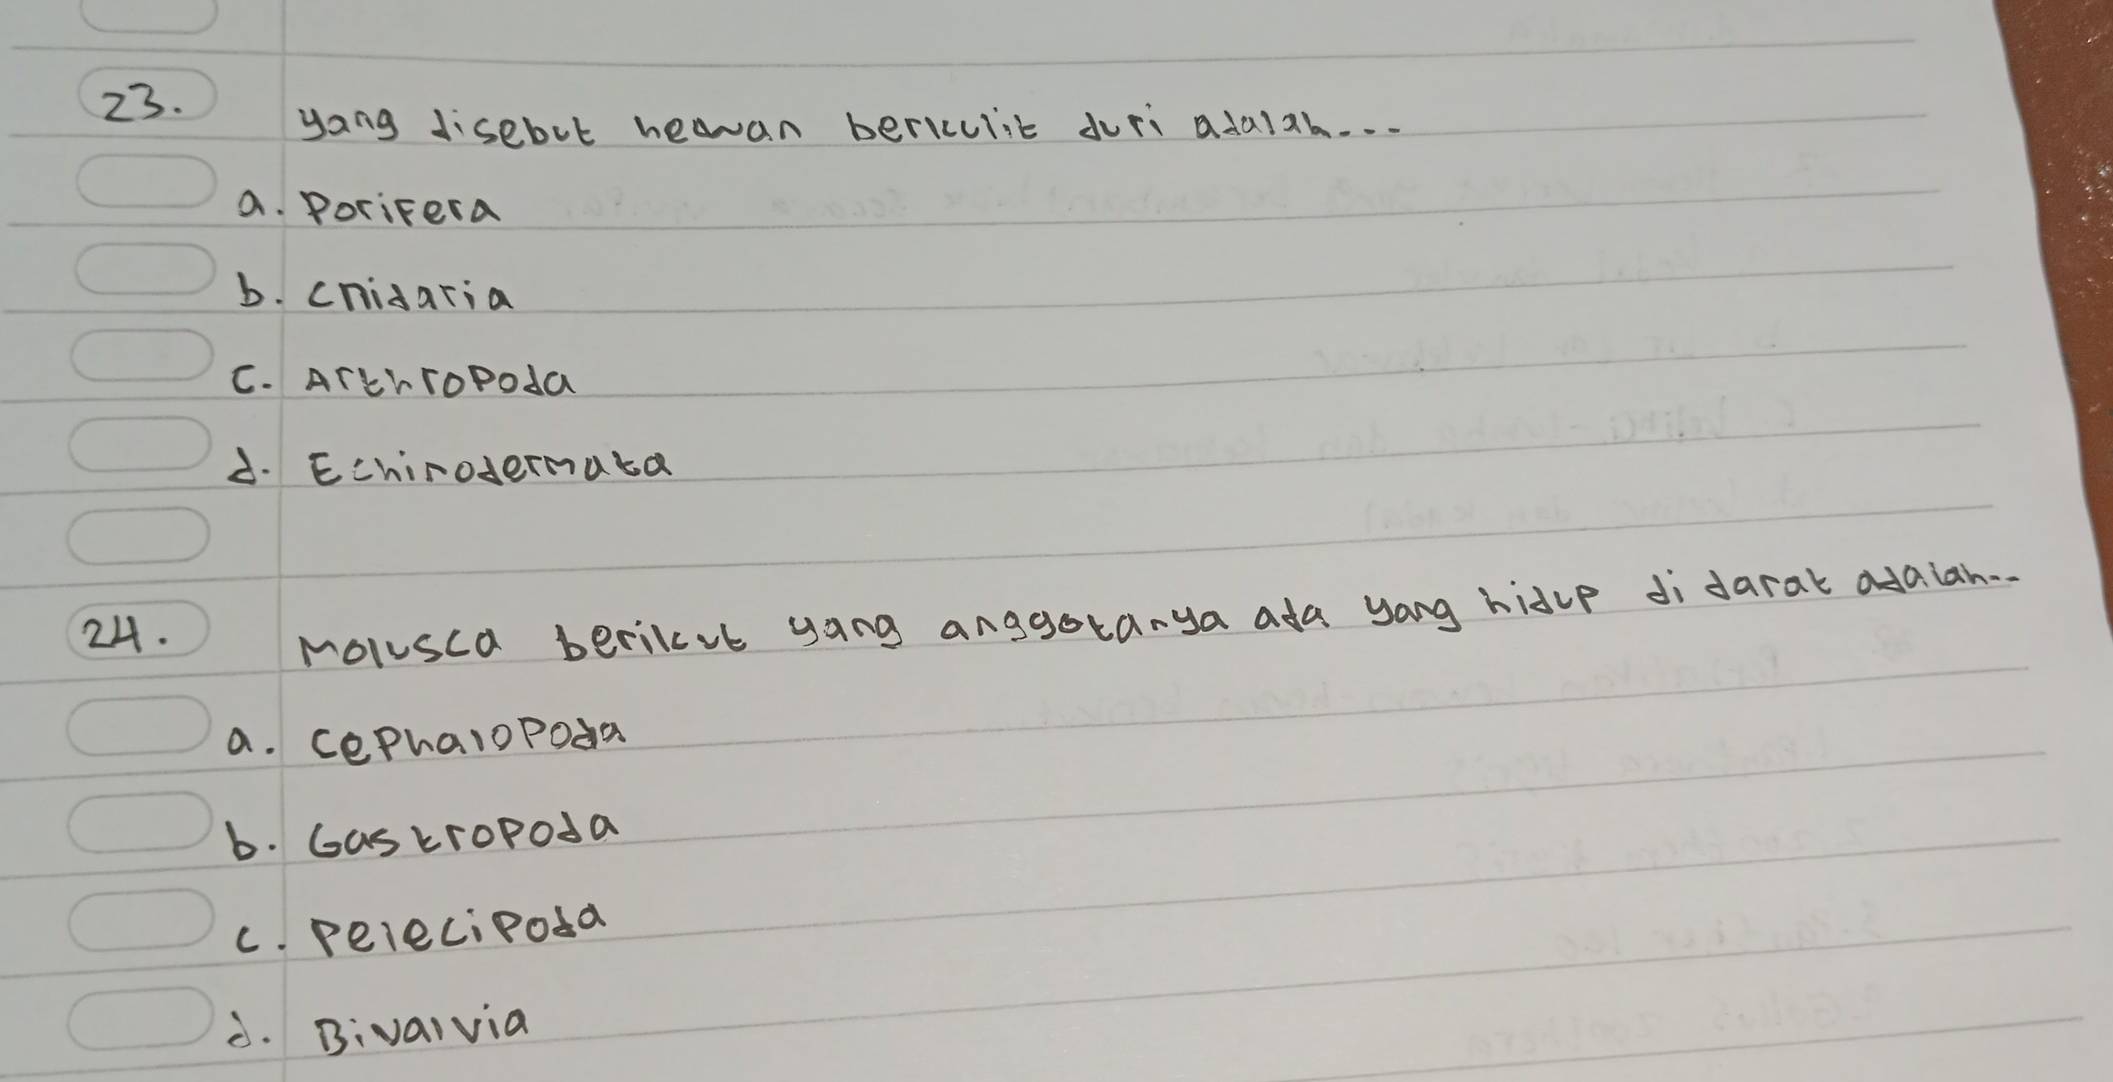 23. yang disebut hewan berkulit duri adalah...
a. Porifera
b. cnidaria
C. Arthropoda
d. Echinodermata
24. Molusca berikut yang anggotanya ada yang hidup di darat adalah...
a. cephalopoda
b. Gastropoda
c. pelecipoda
d. Bivalvia